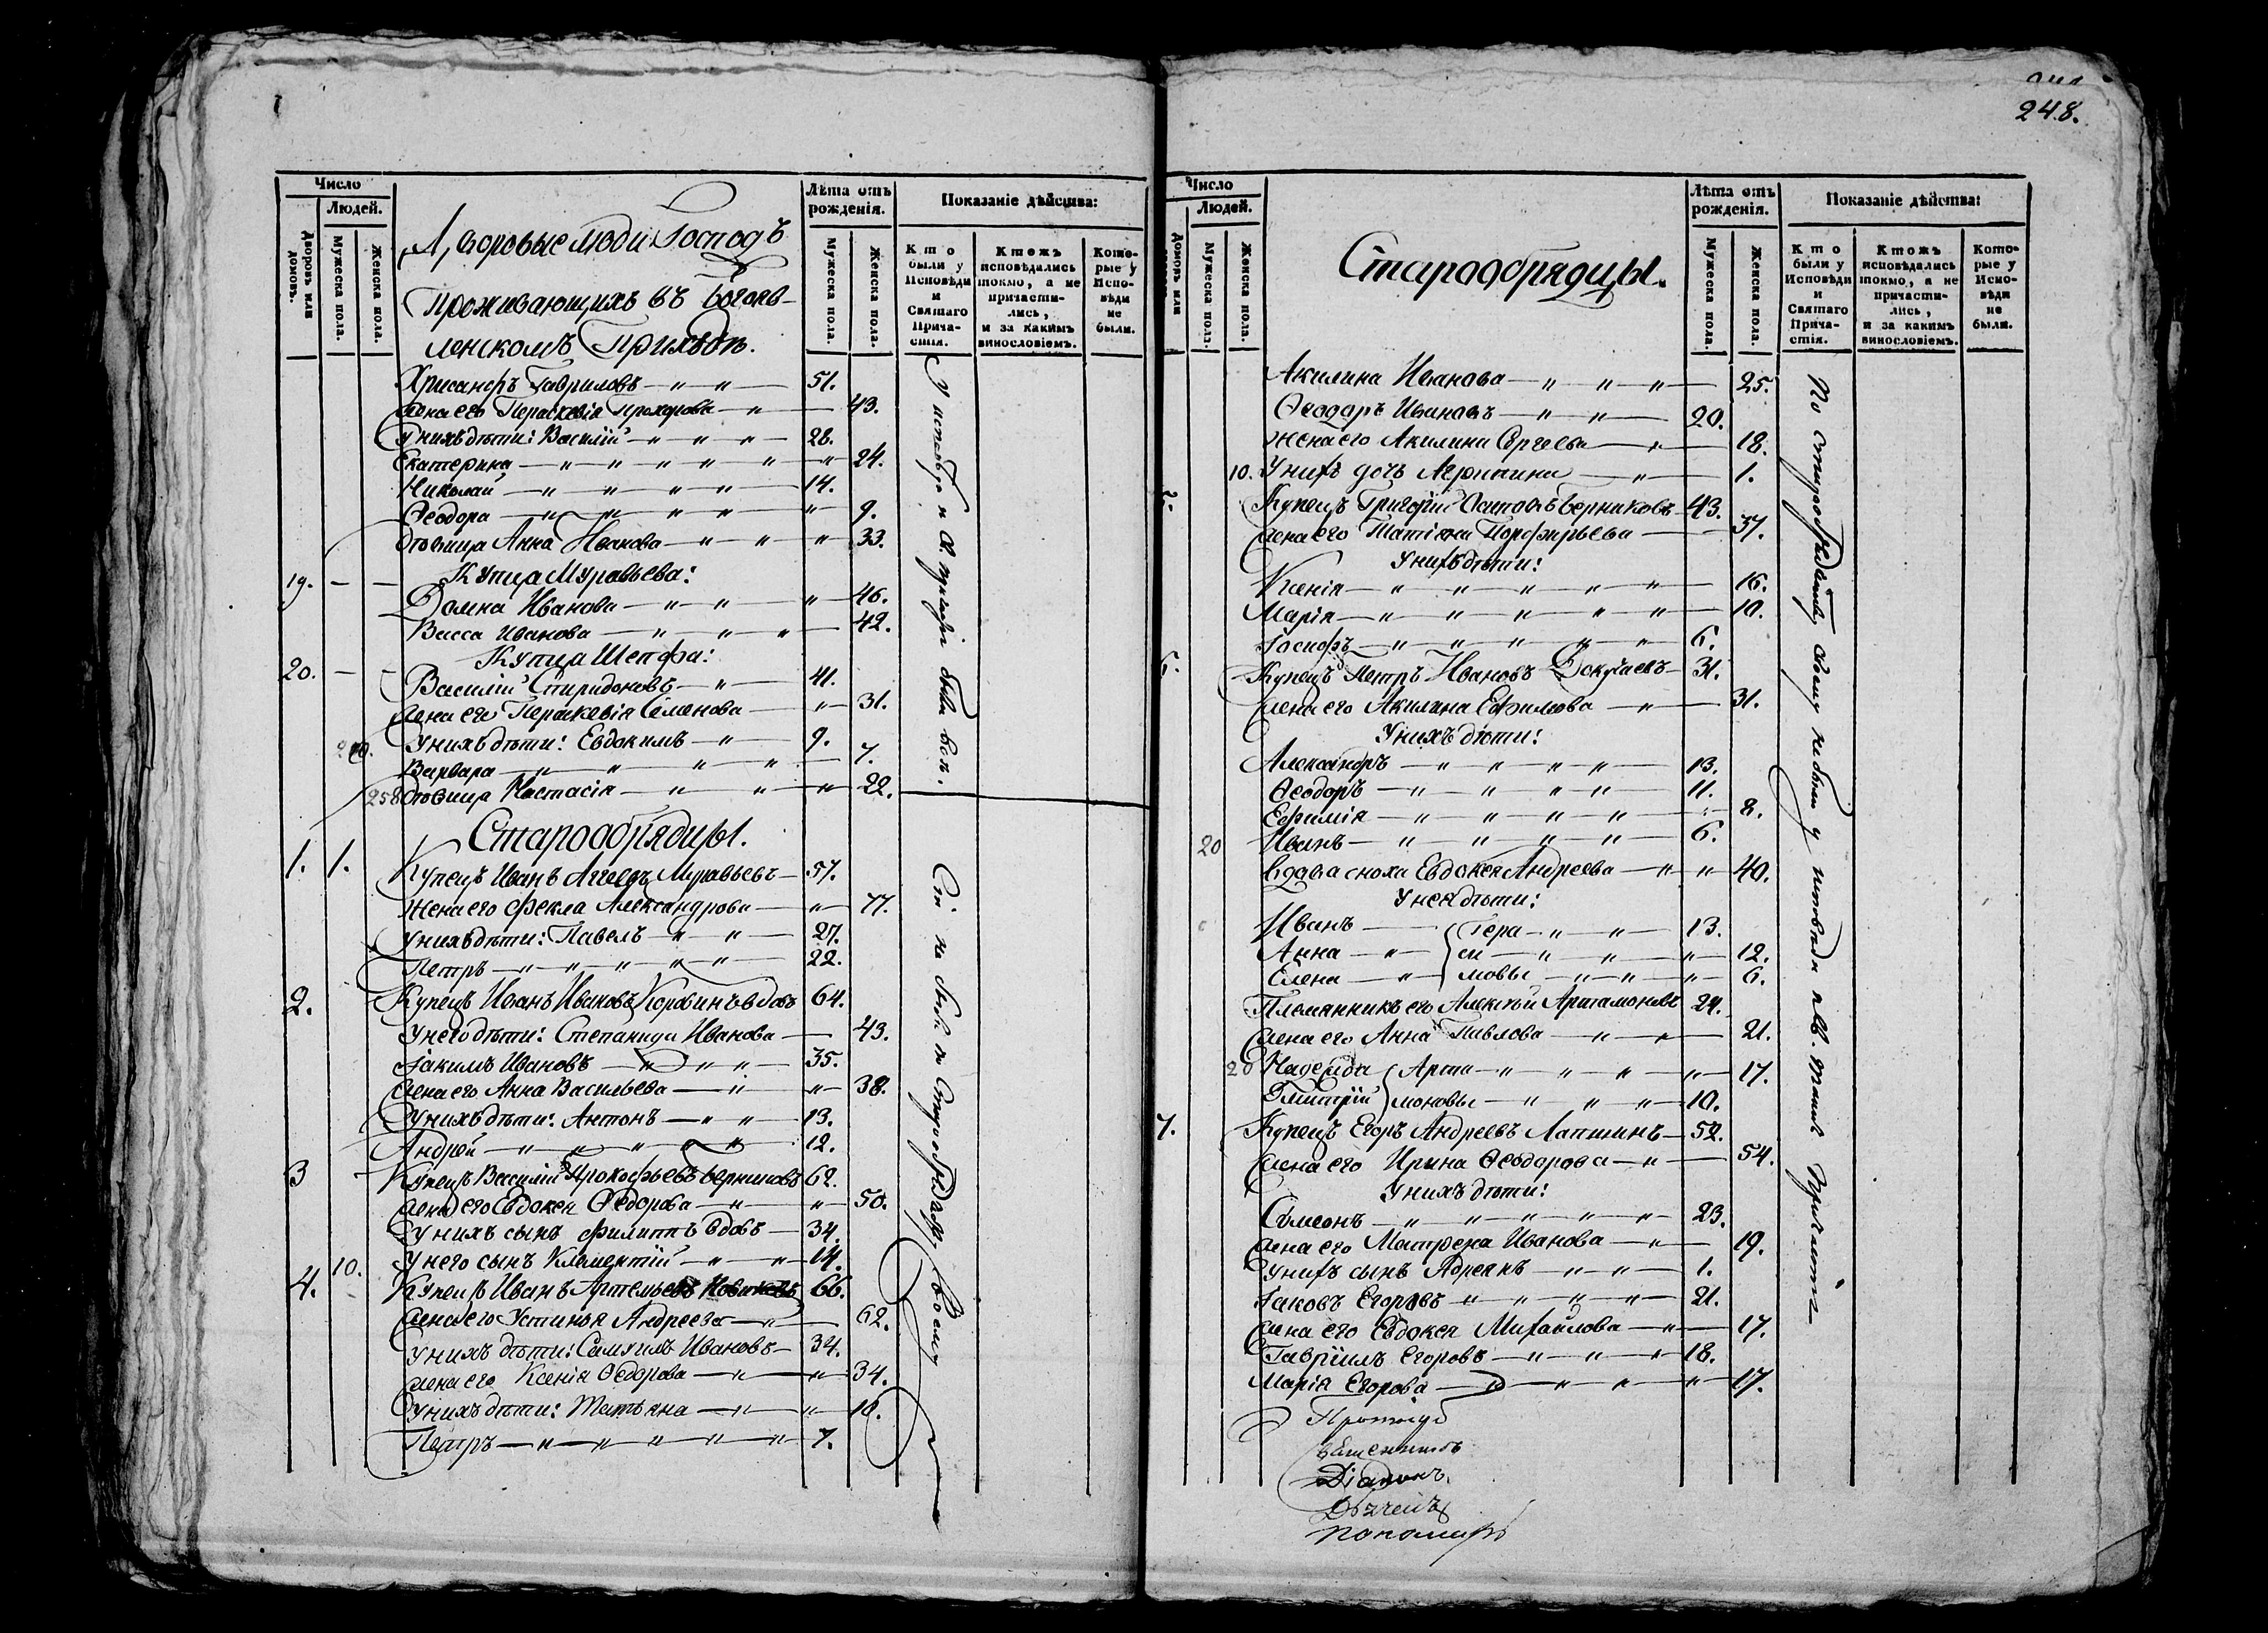 248.
Число
Людей.
Дворовъ или домовъ.
Мужеска пола.
Женска пола.
Лѣта отъ рожденія.
Мужеска пола.
Женска пола.
Показаніе дѣйства:
Кто были у Исповѣди и Святаго Причастія.
Ктожъ исповѣдались токмо, а не причастились, и за какимъ винословіемъ.
Которые у Исповѣди не были.
Дворовые люди Господъ
проживающихъ въ Богояв-
ленскомъ Приходѣ.
Хрисанфъ Гавриловъ — " — " — 51.
Жена его Параскевія Прохорова — " — 43.
У нихъ дѣти: Василій — " — " — " — 28.
Екатерина — " — " — " — " — " — " — 24.
Николай — " — " — " — " — 14.
Ѳеодора — " — " — " — " — " — 9.
Вдовица Анна Иванова — " — " — " — 33.
19. — — Купца Муравьева:
Домна Иванова — " — " — " — 46.
Васса Иванова — " — " — " — 42.
20. — — Купца Шепфа:
Василій Спиридоновъ — " — 41.
Жена его Параскевія Семенова — " — 31.
У нихъ дѣти: Евдокимъ — " — 9.
Варвара — " — " — " — " — 7.
258 Вдовица Настасія — " — " — " — 22.
У исповѣди и С. причастія были всѣ.
Старообрядцы.
1. 1. Купецъ Иванъ Аггеевъ Муравьевъ — 57.
Жена его Фекла Александрова — " — 77.
У нихъ дѣти: Павелъ — " — " — 27.
Петръ — " — " — " — " — " — 22.
2. Купецъ Иванъ Ивановъ Коровинъ вдовъ 64.
У него дѣти: Степанида Иванова — 43.
Іакимъ Ивановъ — " — " — " — 35.
Жена его Анна Васильева — " — " — 38.
У нихъ дѣти: Антонъ — " — " — 13.
Андрей — " — " — " — " — " — 12.
3 Купецъ Василій Прокофьевъ Берниковъ 62.
Жена его Евдокея Ѳедорова — " — " — 50.
У нихъ сынъ Филиппъ вдовъ — 34.
10. У него сынъ Климентій — " — " — 14.
4. Купецъ Иванъ Артемьевъ Новиковъ 66.
Жена его Устинья Андреева — " — 62.
У нихъ дѣти: Самуилъ Ивановъ — 34.
Жена его Ксенія Ѳедорова — " — " — 34.
У нихъ дѣти: Татьяна — " — " — 10.
Петръ — " — " — " — " — " — 7.
Сіи не были по Старообрядству своему
Число
Людей.
Дворовъ или домовъ.
Мужеска пола.
Женска пола.
Лѣта отъ рожденія.
Мужеска пола.
Женска пола.
Показаніе дѣйства:
Кто были у Исповѣди и Святаго Причастія.
Ктожъ исповѣдались токмо, а не причастились, и за какимъ винословіемъ.
Которые у Исповѣди не были.
Старообрядцы.
Акилина Иванова — " — " — " — 25.
Ѳеодоръ Ивановъ — " — " — 20.
Жена его Акилина Сергеева — " — 18.
10. У нихъ дочь Агрипина — " — 1.
5. Купецъ Григорій Осиповъ Берниковъ — 43.
Жена его Татіяна Порфирьева — 37.
У нихъ дѣти:
Ксенія — " — " — " — " — " — 16.
Марія — " — " — " — " — " — 10.
Іосифъ — " — " — " — " — " — 6.
6. Купецъ Петръ Ивановъ Докучаевъ — 31.
Жена его Акилина Ефимова — " — 31.
У нихъ дѣти:
Александръ — " — " — " — " — 13.
Ѳеодоръ — " — " — " — " — 11.
Ефимія — " — " — " — " — 8.
20 Иванъ — " — " — " — " — 6.
Вдова сноха Евдокея Андреева — " — " — 40.
У нея дѣти:
Иванъ — Гера — " — " — 13.
Анна — " — си — " — " — " — 12.
Елена — " — мовы — " — " — " — 6.
Племянникъ его Алексѣй Артамоновъ 24.
Жена его Анна Павлова — " — " — 21.
20 Надежда Арта — " — " — " — " — 17.
Дмитрій моновы — " — " — " — 10.
7. Купецъ Егоръ Андреевъ Лапшинъ — 52.
Жена его Ирина Ѳеодорова — " — 54.
У нихъ дѣти:
Симеонъ — " — " — " — " — " — 23.
Жена его Матрена Иванова — " — 19.
У нихъ сынъ Адреянъ — " — " — 1.
Іаковъ Егоровъ — " — " — " — " — 21.
Жена его Евдокея Михайлова — " — 17.
Гавріилъ Егоровъ — " — " — " — 18.
Марія Егорова — " — " — " — " — 17.
По старообрядству своему не были у исповѣди и Св. Таинъ Причастія
Діаконъ
пономарь